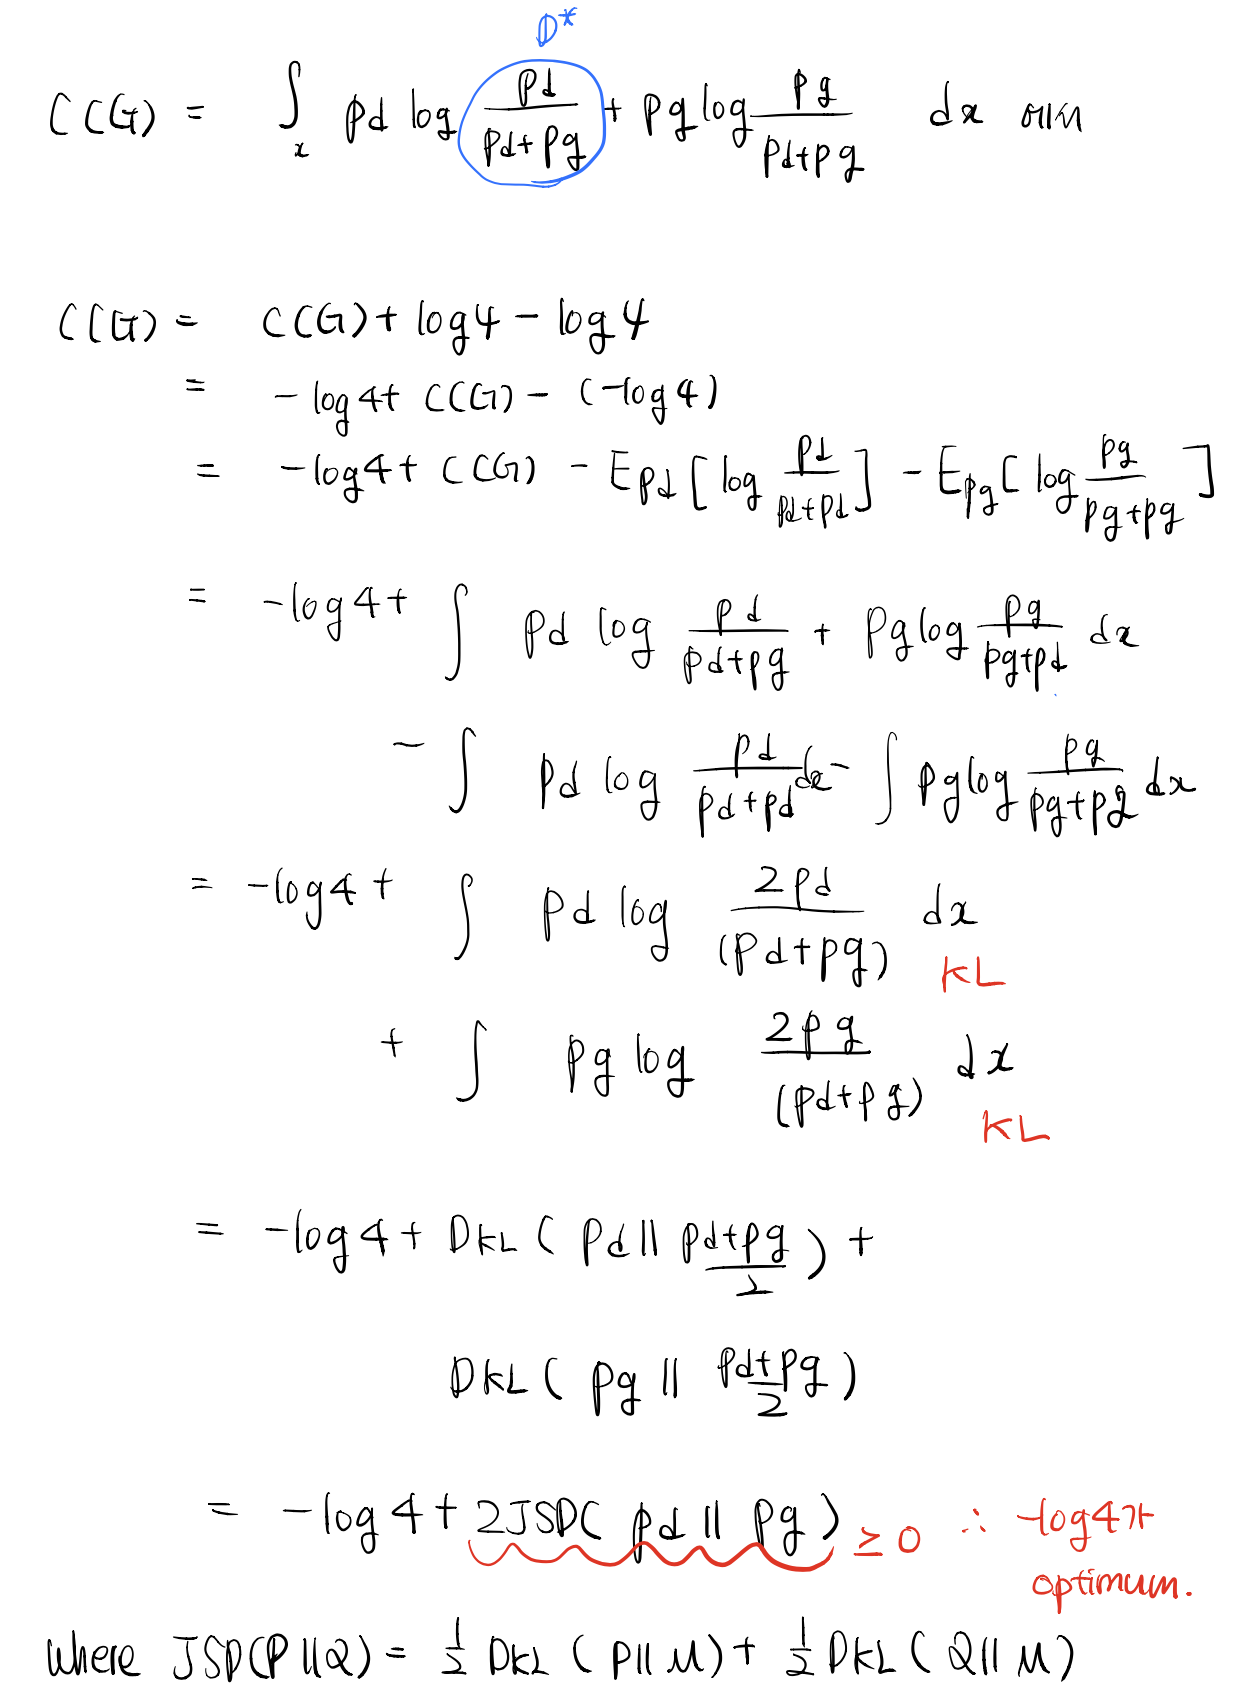 D*
C(G) = ∫_x pd log pd/(pd+pg) + pg log pg/(pd+pg) dx 에서
C(G) = C(G) + log4 - log4
= -log4 + C(G) - (-log4)
= -log4 + C(G) - E_pd [log pd/(pd+pd)] - E_pg [log pg/(pg+pg)]
= -log4 + ∫ pd log pd/(pd+pg) + pg log pg/(pg+pd) dx
- ∫ pd log pd/(pd+pd) dx - ∫ pg log pg/(pg+pg) dx
= -log4 + ∫ pd log 2pd/(pd+pg) dx
KL
+ ∫ pg log 2pg/(pd+pg) dx
KL
= -log4 + DKL ( pd || (pd+pg)/2 ) +
DKL ( pg || (pd+pg)/2 )
= -log4 + 2JSD( pd || pg ) ≥ 0 ∴ -log4가
optimum.
where JSD(P||Q) = 1/2 DKL ( P || M ) + 1/2 DKL ( Q || M )